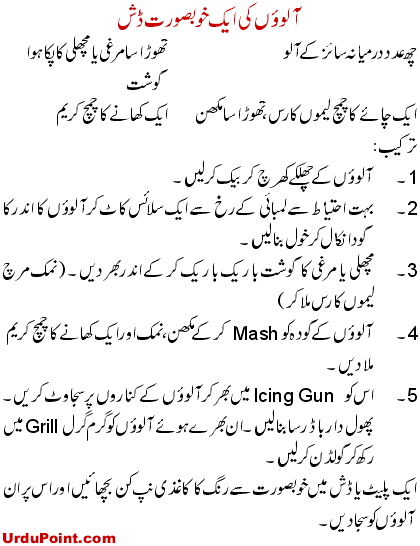 آلوؤں کی ایک خوبصورت ڈش
چھ عدد درمیانہ سائز کے آلو تھوڑا سا مرغی یا مچھلی کا پکا ہوا
گوشت
ایک چائے کا چمچ لیموں کا رس، تھوڑا سا مکھن ایک کھانے کا چمچ کریم
ترکیب:
1۔ آلوؤں کے چھلکے کھرچ کر بیک کر لیں۔
2۔ بہت احتیاط سے لمبائی کے رخ سے ایک سلائس کاٹ کر آلوؤں کا اندر کا
گودا نکال کر خول بنا لیں۔
3۔ مچھلی یا مرغی کا گوشت باریک باریک کر کے اندر بھر دیں۔ (نمک مرچ
لیموں کا رس ملا کر)
4۔ آلوؤں کے گودہ کو Mash کر کے مکھن، نمک اور ایک کھانے کا چمچ کریم
ملا دیں۔
5۔ اس کو Icing Gun میں بھر کر آلوؤں کے کناروں پر سجاوٹ کریں۔
پھول دار باڈر سا بنا لیں۔ ان بھرے ہوئے آلوؤں کو گرم گرل Grill میں
رکھ کر گولڈن کر لیں۔
ایک پلیٹ یا ڈش میں خوبصورت سے رنگ کا کاغذی نیپ کن بچھائیں اور اس پر ان
آلوؤں کو سجا دیں۔
UrduPoint.com